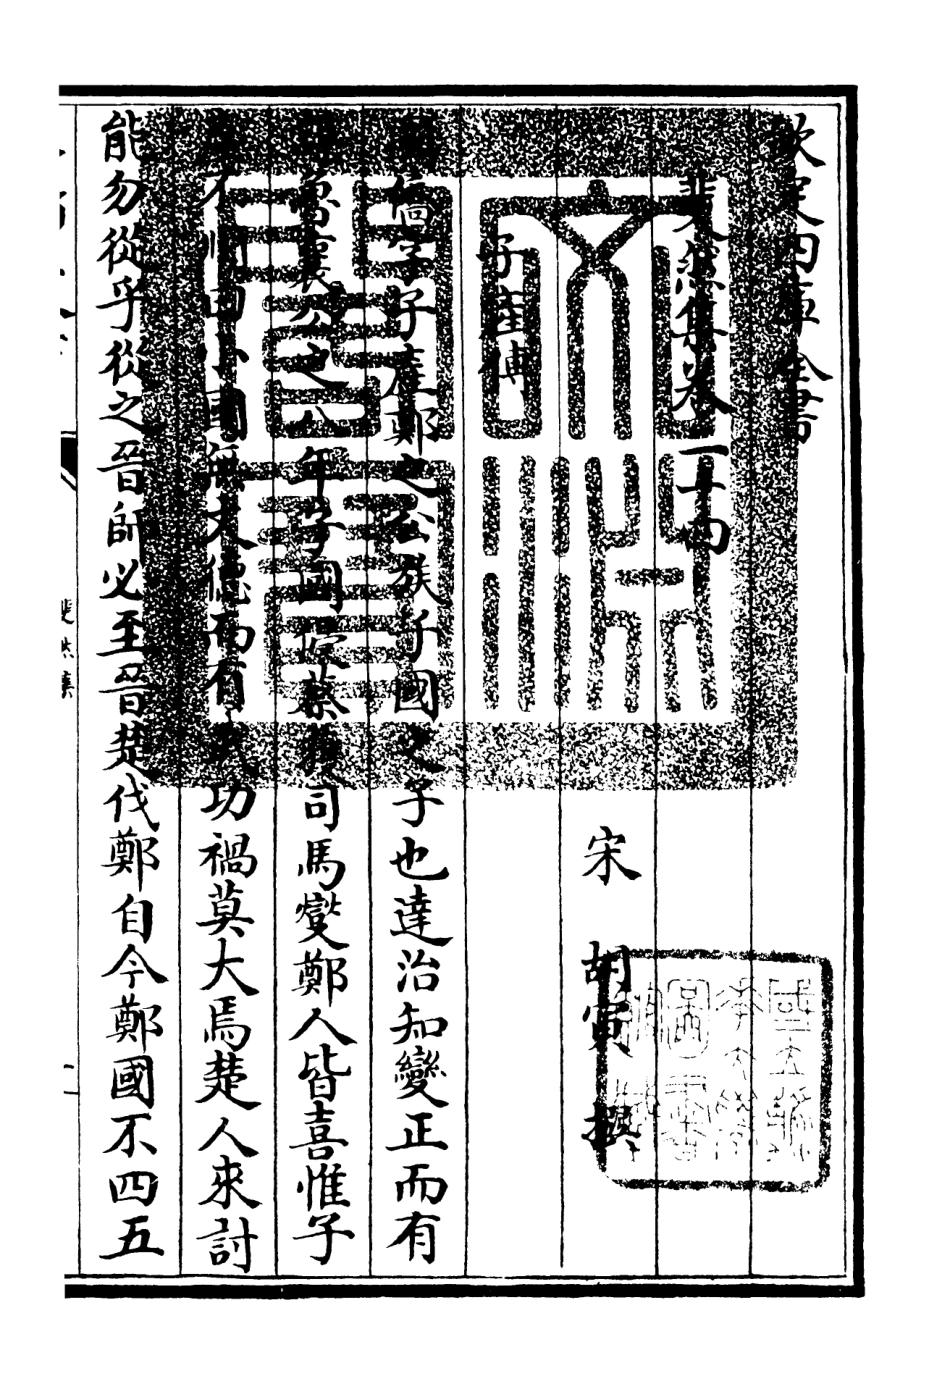 欽定四庫全書
斐然集卷二十四
宋 胡寅 撰
子產傳
國僑字子產鄭之公族子國之子也達治知變正而有
魯襄公之八年子國侵蔡獲司馬燮鄭人皆喜惟子
產不順曰小國無文德而有武功禍莫大焉楚人來討
能勿從乎從之晉師必至晉楚伐鄭自今鄭國不四五